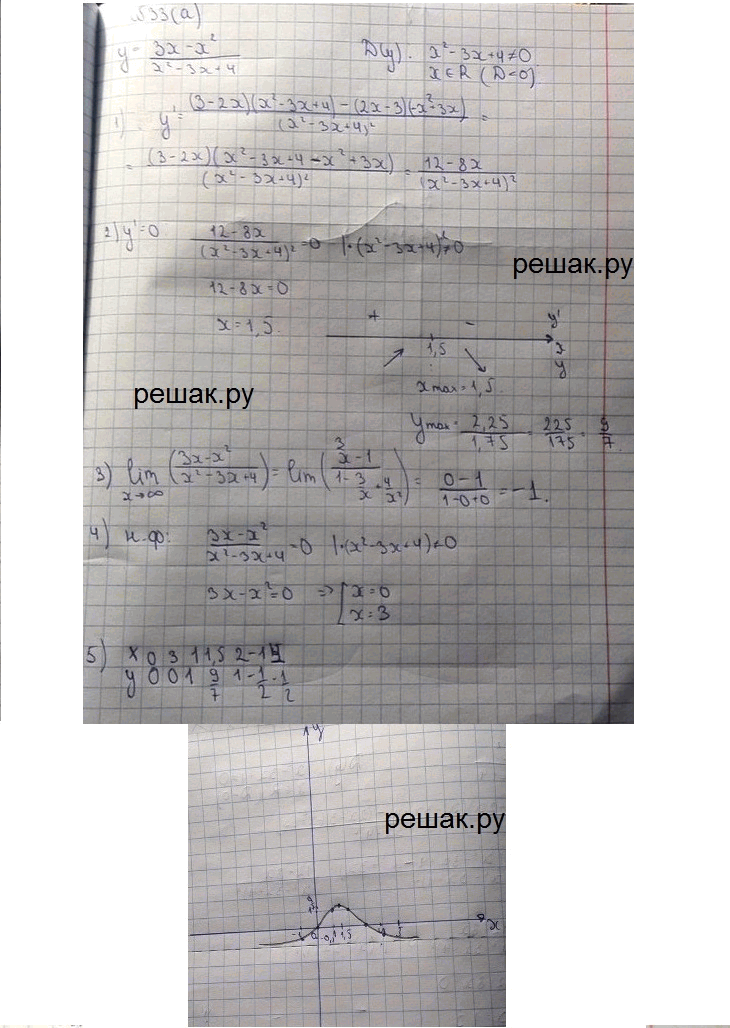 №33(а)
y = (3x - x²)/(x² - 3x + 4)   D(y): x² - 3x + 4 ≠ 0
x ∈ R (D<0)
1) y' = ((3 - 2x)(x² - 3x + 4) - (2x - 3)(-x² + 3x))/(x² - 3x + 4)² =
= ((3 - 2x)(x² - 3x + 4 - x² + 3x))/(x² - 3x + 4)² = (12 - 8x)/(x² - 3x + 4)²
2) y' = 0   (12 - 8x)/(x² - 3x + 4)² = 0 | · (x² - 3x + 4)² ≠ 0
решак.ру
12 - 8x = 0
x = 1,5
+ - y'
1,5 x
y
xmax = 1,5.
решак.ру
ymax = 2,25/1,75 = 225/175 = 9/7.
3) lim x→∞ ((3x - x²)/(x² - 3x + 4)) = lim ((3/x - 1)/(1 - 3/x + 4/x²)) = (0 - 1)/(1 - 0 + 0) = -1.
4) н.ф: (3x - x²)/(x² - 3x + 4) = 0 | · (x² - 3x + 4) ≠ 0
3x - x² = 0 ⇒ [ x = 0
x = 3
5) x 0 3 1 1,5 2 -1 4
y 0 0 1 9/7 1 -1/2 -1/2
y
решак.ру
-1 0 1,5 4 x